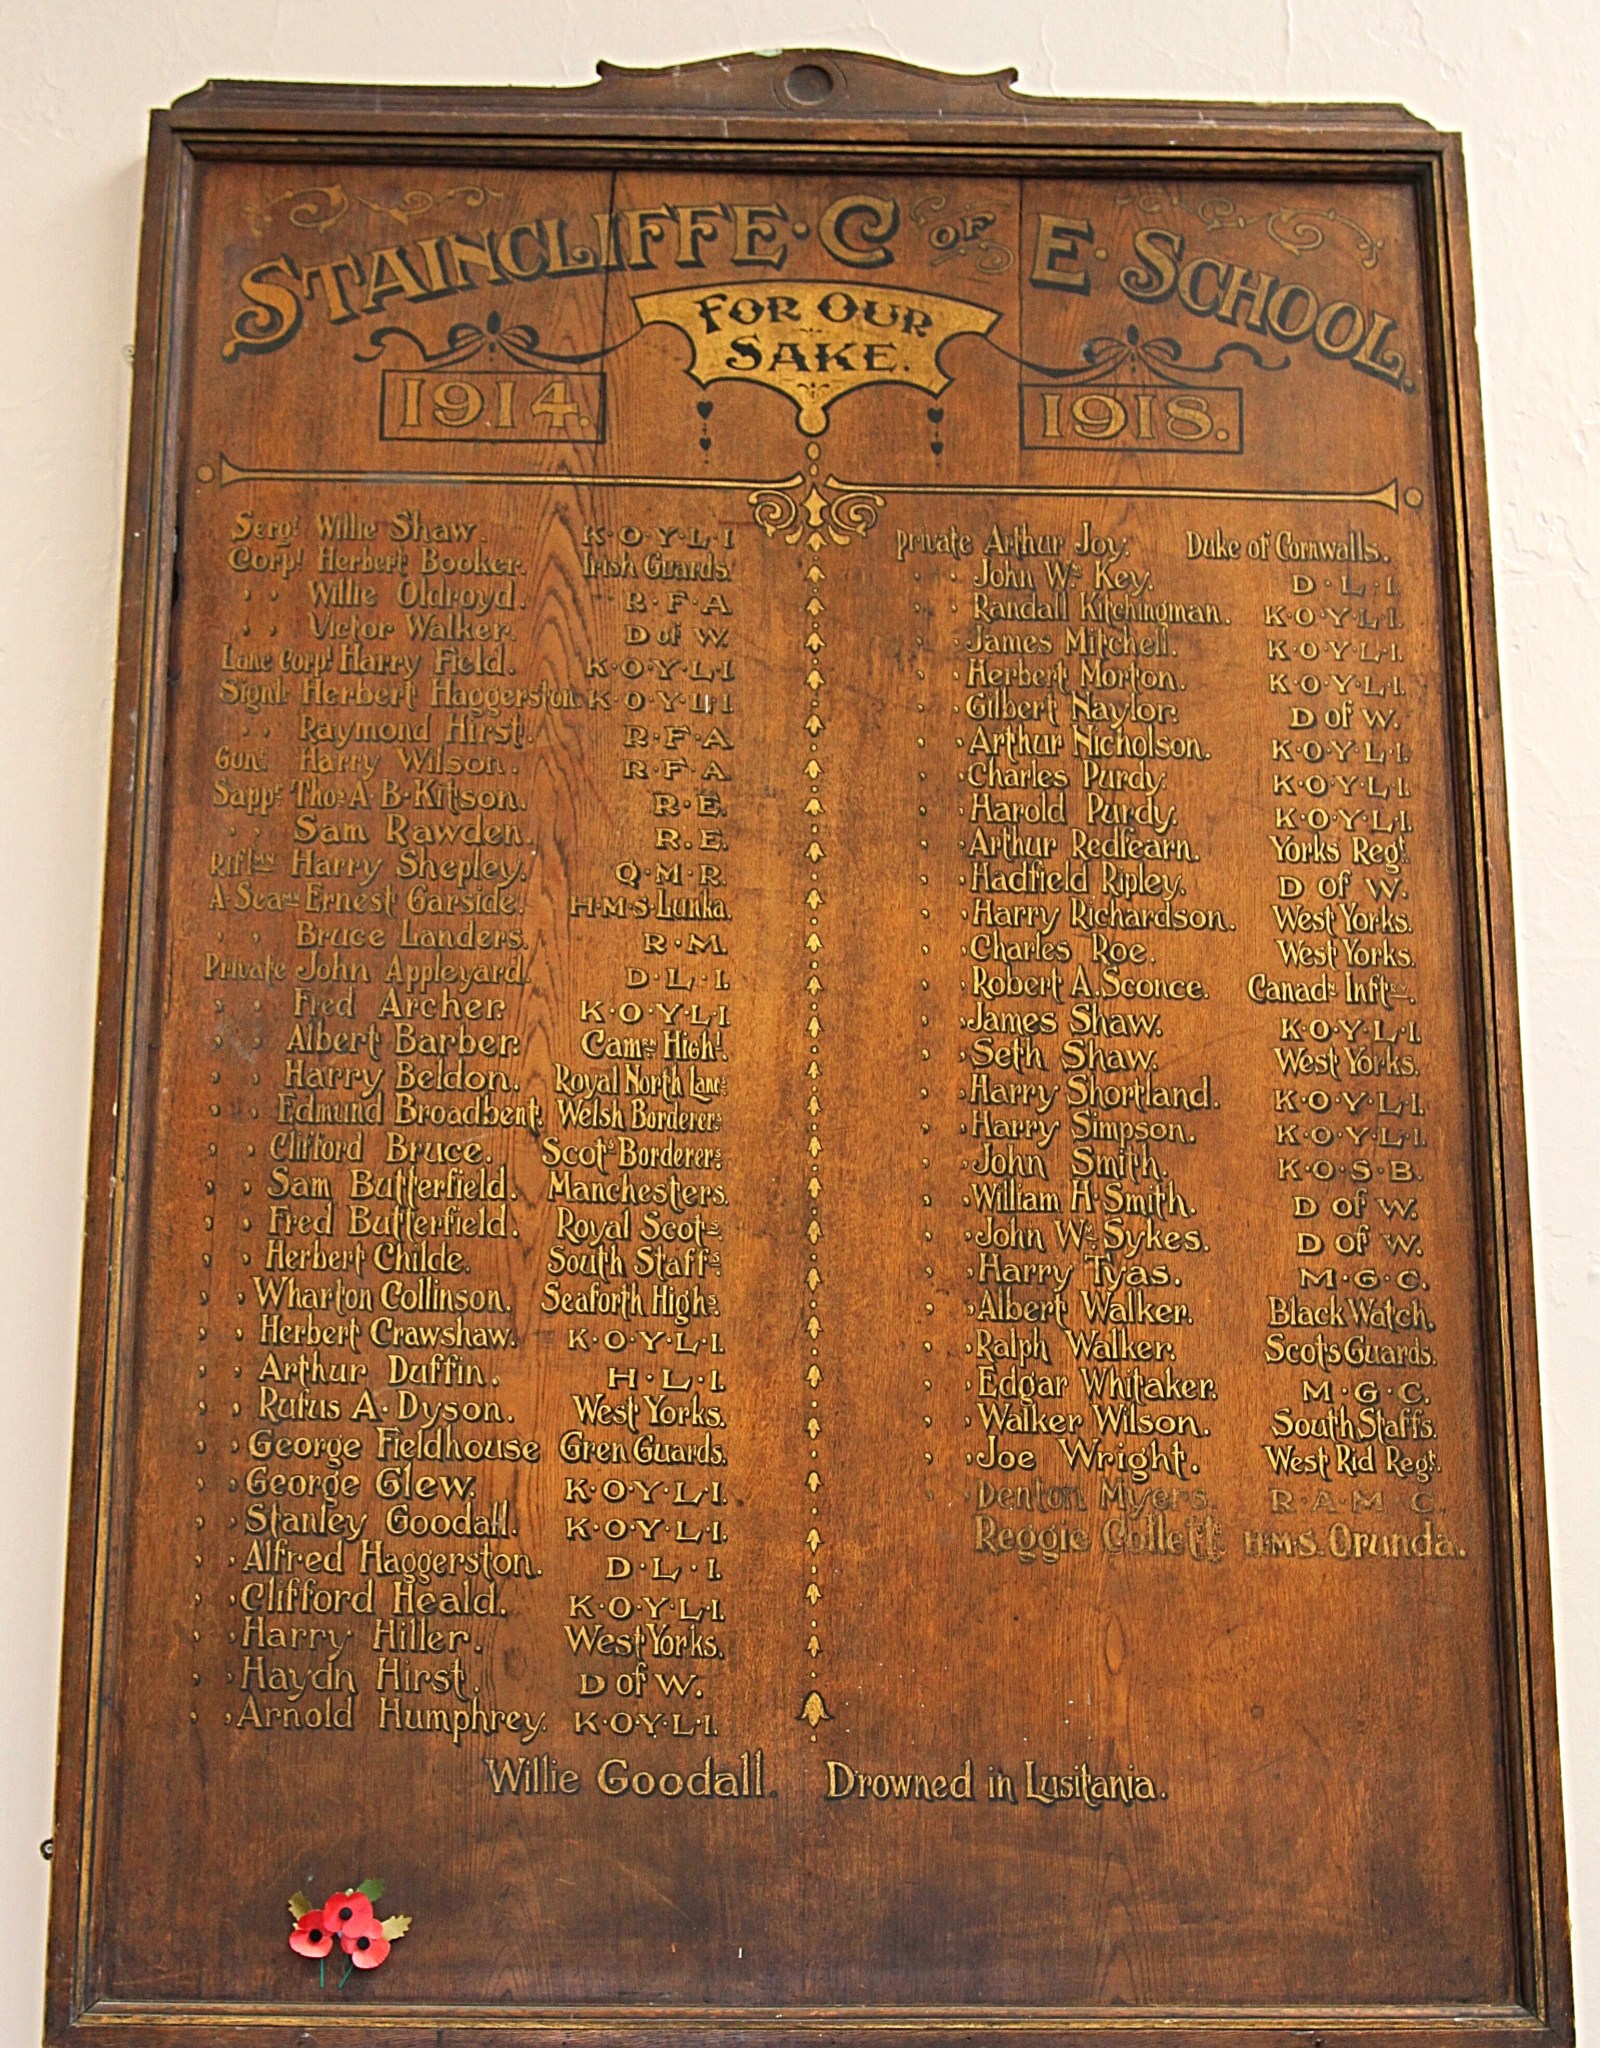 STAINCLIFFE · C OF E · SCHOOL.
FOR OUR
SAKE.
1914. 1918.
Sergt Willie Shaw. K·O·Y·L·I
Corpl Herbert Booker. Irish Guards.
" Willie Oldroyd. R·F·A
" Victor Walker. D of W.
Lance Corpl Harry Field. K·O·Y·L·I
Signlr Herbert Haggerston. K·O·Y·L·I
" Raymond Hirst. R·F·A
Gunr Harry Wilson. R·F·A
Sappr Thos A·B·Kitson. R·E.
" Sam Rawden. R.E.
Riflmn Harry Shepley. Q·M·R.
A·Seamn Ernest Garside. H·M·S·Lunka.
" Bruce Landers. R·M.
Private John Appleyard. D·L·I.
" Fred Archer. K·O·Y·L·I.
" Albert Barber. Camrn High!.
" Harry Beldon. Royal North Lancs
" Edmund Broadbent. Welsh Borderers
" Clifford Bruce. Scots Borderers
" Sam Butterfield. Manchesters.
" Fred Butterfield. Royal Scots.
" Herbert Childe. South Staffs.
" Wharton Collinson. Seaforth Highs.
" Herbert Crawshaw. K·O·Y·L·I.
" Arthur Duffin. H·L·I.
" Rufus A·Dyson. West Yorks.
" George Fieldhouse Gren Guards.
" George Glew. K·O·Y·L·I.
" Stanley Goodall. K·O·Y·L·I.
" Alfred Haggerston. D·L·I.
" Clifford Heald. K·O·Y·L·I.
" Harry Hiller. West Yorks.
" Haydn Hirst. D of W.
" Arnold Humphrey. K·O·Y·L·I.
Private Arthur Joy. Duke of Cornwalls.
" John Wm Key. D·L·I.
" Randall Kitchingman. K·O·Y·L·I.
" James Mitchell. K·O·Y·L·I.
" Herbert Morton. K·O·Y·L·I.
" Gilbert Naylor. D of W.
" Arthur Nicholson. K·O·Y·L·I.
" Charles Purdy. K·O·Y·L·I.
" Harold Purdy. K·O·Y·L·I.
" Arthur Redfearn. Yorks Regt.
" Hadfield Ripley. D of W.
" Harry Richardson. West Yorks.
" Charles Roe. West Yorks.
" Robert A. Sconce. Canadn Inftry.
" James Shaw. K·O·Y·L·I.
" Seth Shaw. West Yorks.
" Harry Shortland. K·O·Y·L·I.
" Harry Simpson. K·O·Y·L·I.
" John Smith. K·O·S·B.
" William H·Smith. D of W.
" John Wm Sykes. D of W.
" Harry Tyas. M·G·C.
" Albert Walker. Black Watch.
" Ralph Walker. Scots Guards.
" Edgar Whitaker. M·G·C.
" Walker Wilson. South Staffs.
" Joe Wright. West Rid Regt.
" Denton Myers. R·A·M·C.
Reggie Collett. H.M.S. Orunda.
Willie Goodall. Drowned in Lusitania.